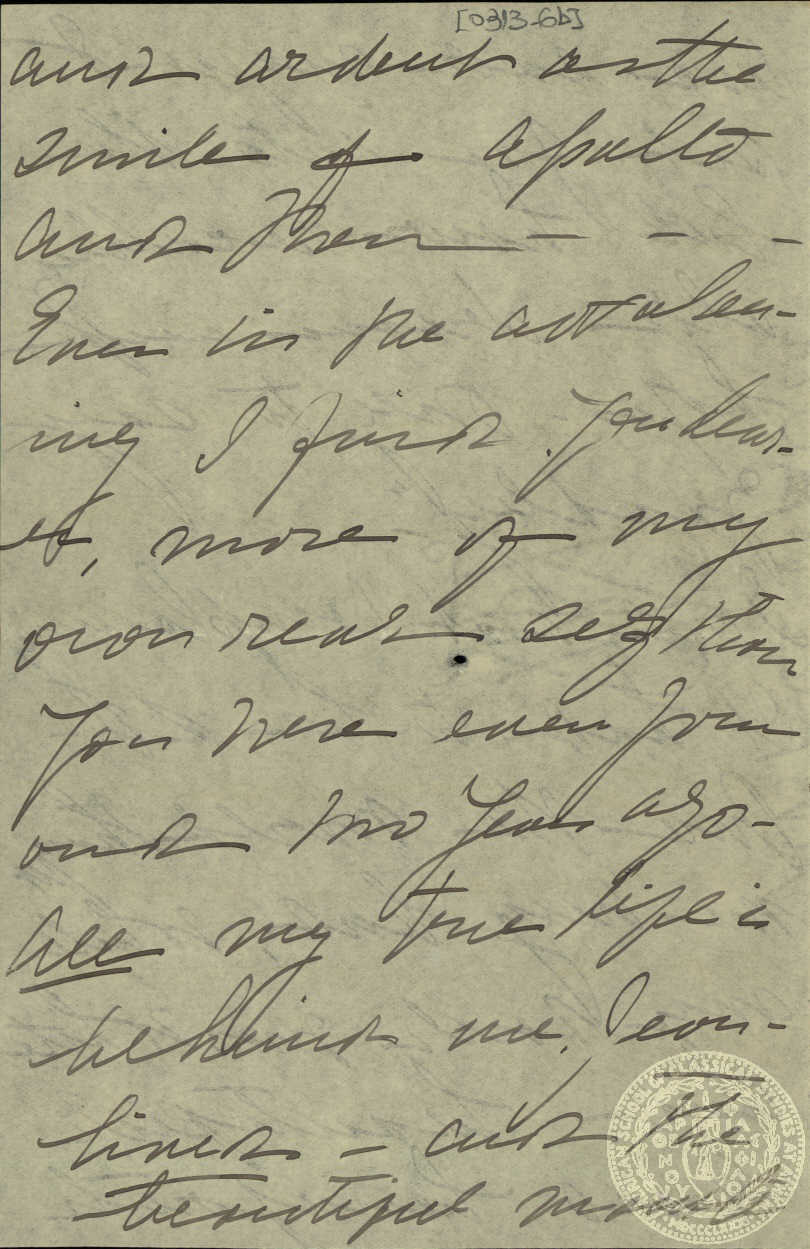 [0313-6b]
and ardent as the
smile of Apollo
and then — — — —
Even in the act of lean-
ing I find you dear-
est, more of my
own real self than
you were even from
and two years ago —
All my true life is
behind me, I can-
lived — and the
beautiful